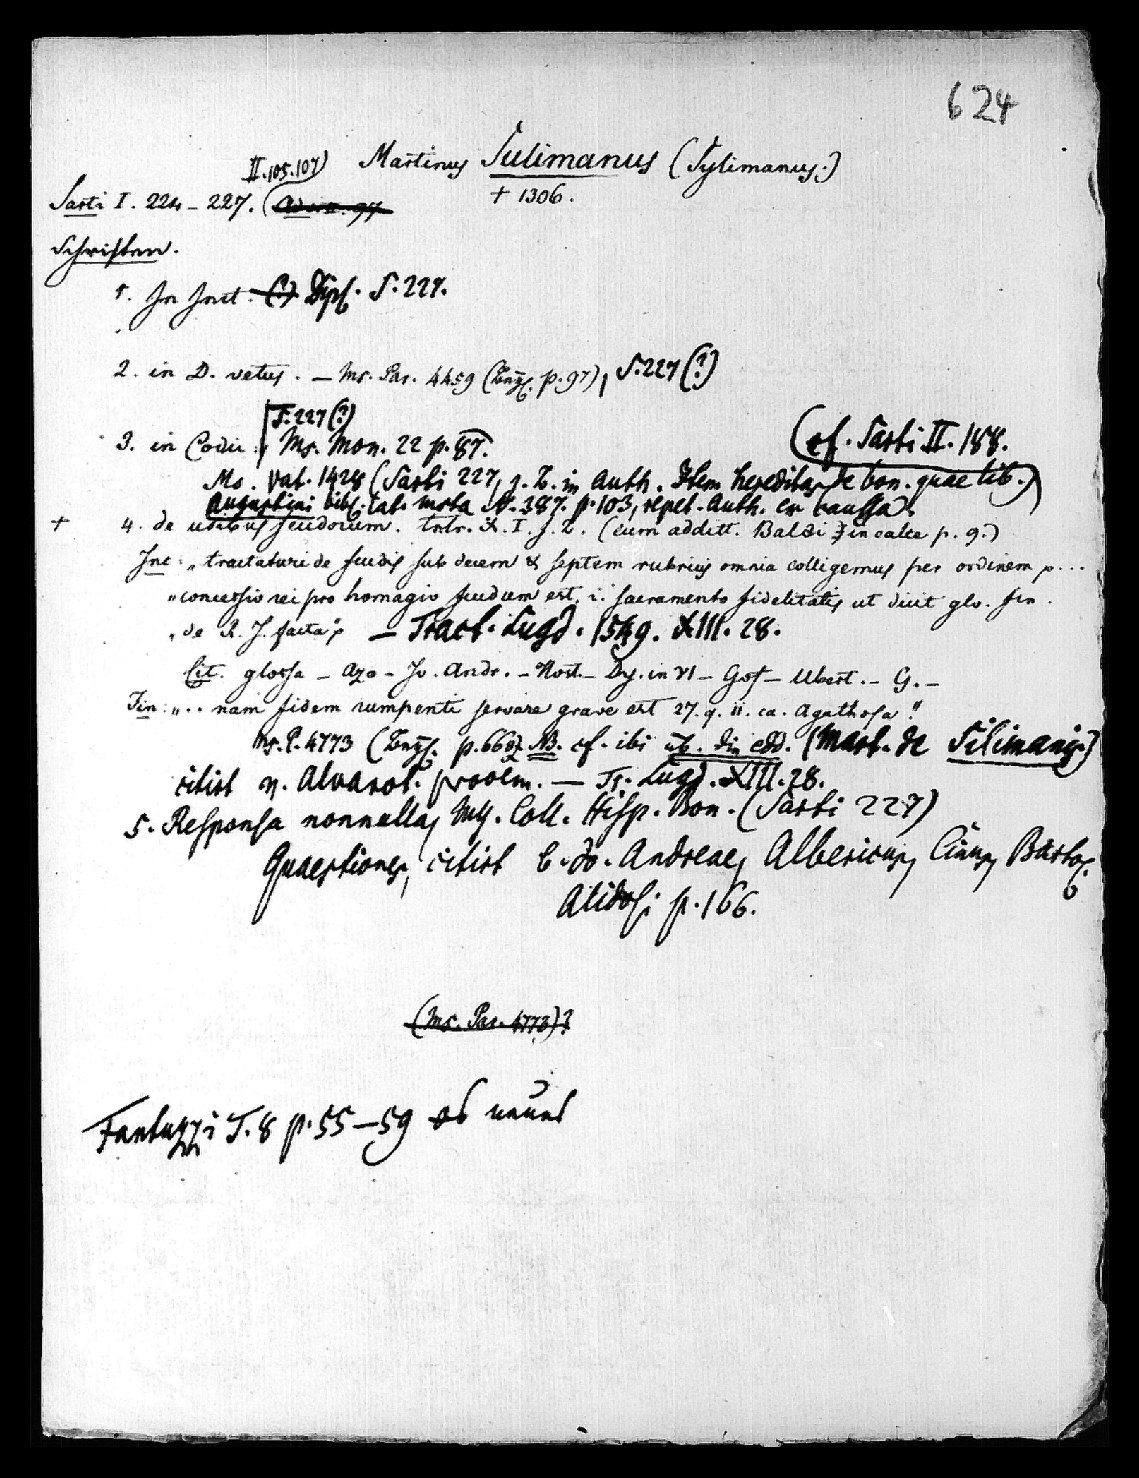 624
Martinus Sulimanus (Sylimanus.)
II.105.107)
† 1306.
Sarti I. 224–227. (
Schriften.
1. In Inst. Dipl. S. 227.
2. in D. vetus. — Ms. Par. 4459 (p. 97), S. 227 (?)
S. 227 (?)
3. in Codic. Ms. Mon. 22 p. 87.
(cf. Sarti II. 188.
Ms. Vat. 1428 (Sarti 227, z. B. in Auth. Item hereditas de bon. quae lib.)
Augustini bibl. lat. msta N. 387. p. 103, repet. Auth. ex caussa).
+ 4. de usibus feudorum. X. I. (cum additt. Baldi in calce p. 9.)
Inc: „tractaturi de feudis sub decem & septem rubricis omnia colligemus per ordinem p...
„concessio rei pro homagio feudum est, i. sacramento fidelitatis ut dicit glo. fin.
„de R. J. facta; — Tract. Lugd. 1549. XIII. 28.
Cit. glossa – Azo – Jo. Andr. – Host. – Dy. in VI – Gof – Ubert. – G. –
Fin: „.. nam fidem rumpenti servare grave est 27. q. ii. ca. Agathosa."
Ms. P. 4773 (p. 66 NB. cf. ibi edd. (Mart. de Silimanis.)
citirt v. Alvarot. prooem. — Tr. Lugd. XIII. 28.
5. Responsa nonnulla, Ms. Coll. Hisp. Bon. (Sarti 227)
Quaestiones, citirt b. Jo. Andreae, Albericus, Cinus, Bartol.
Alidosi p. 166.
(Ms. Par. 4773)?
Fantuzzi T. 8 p. 55–59 ob neues